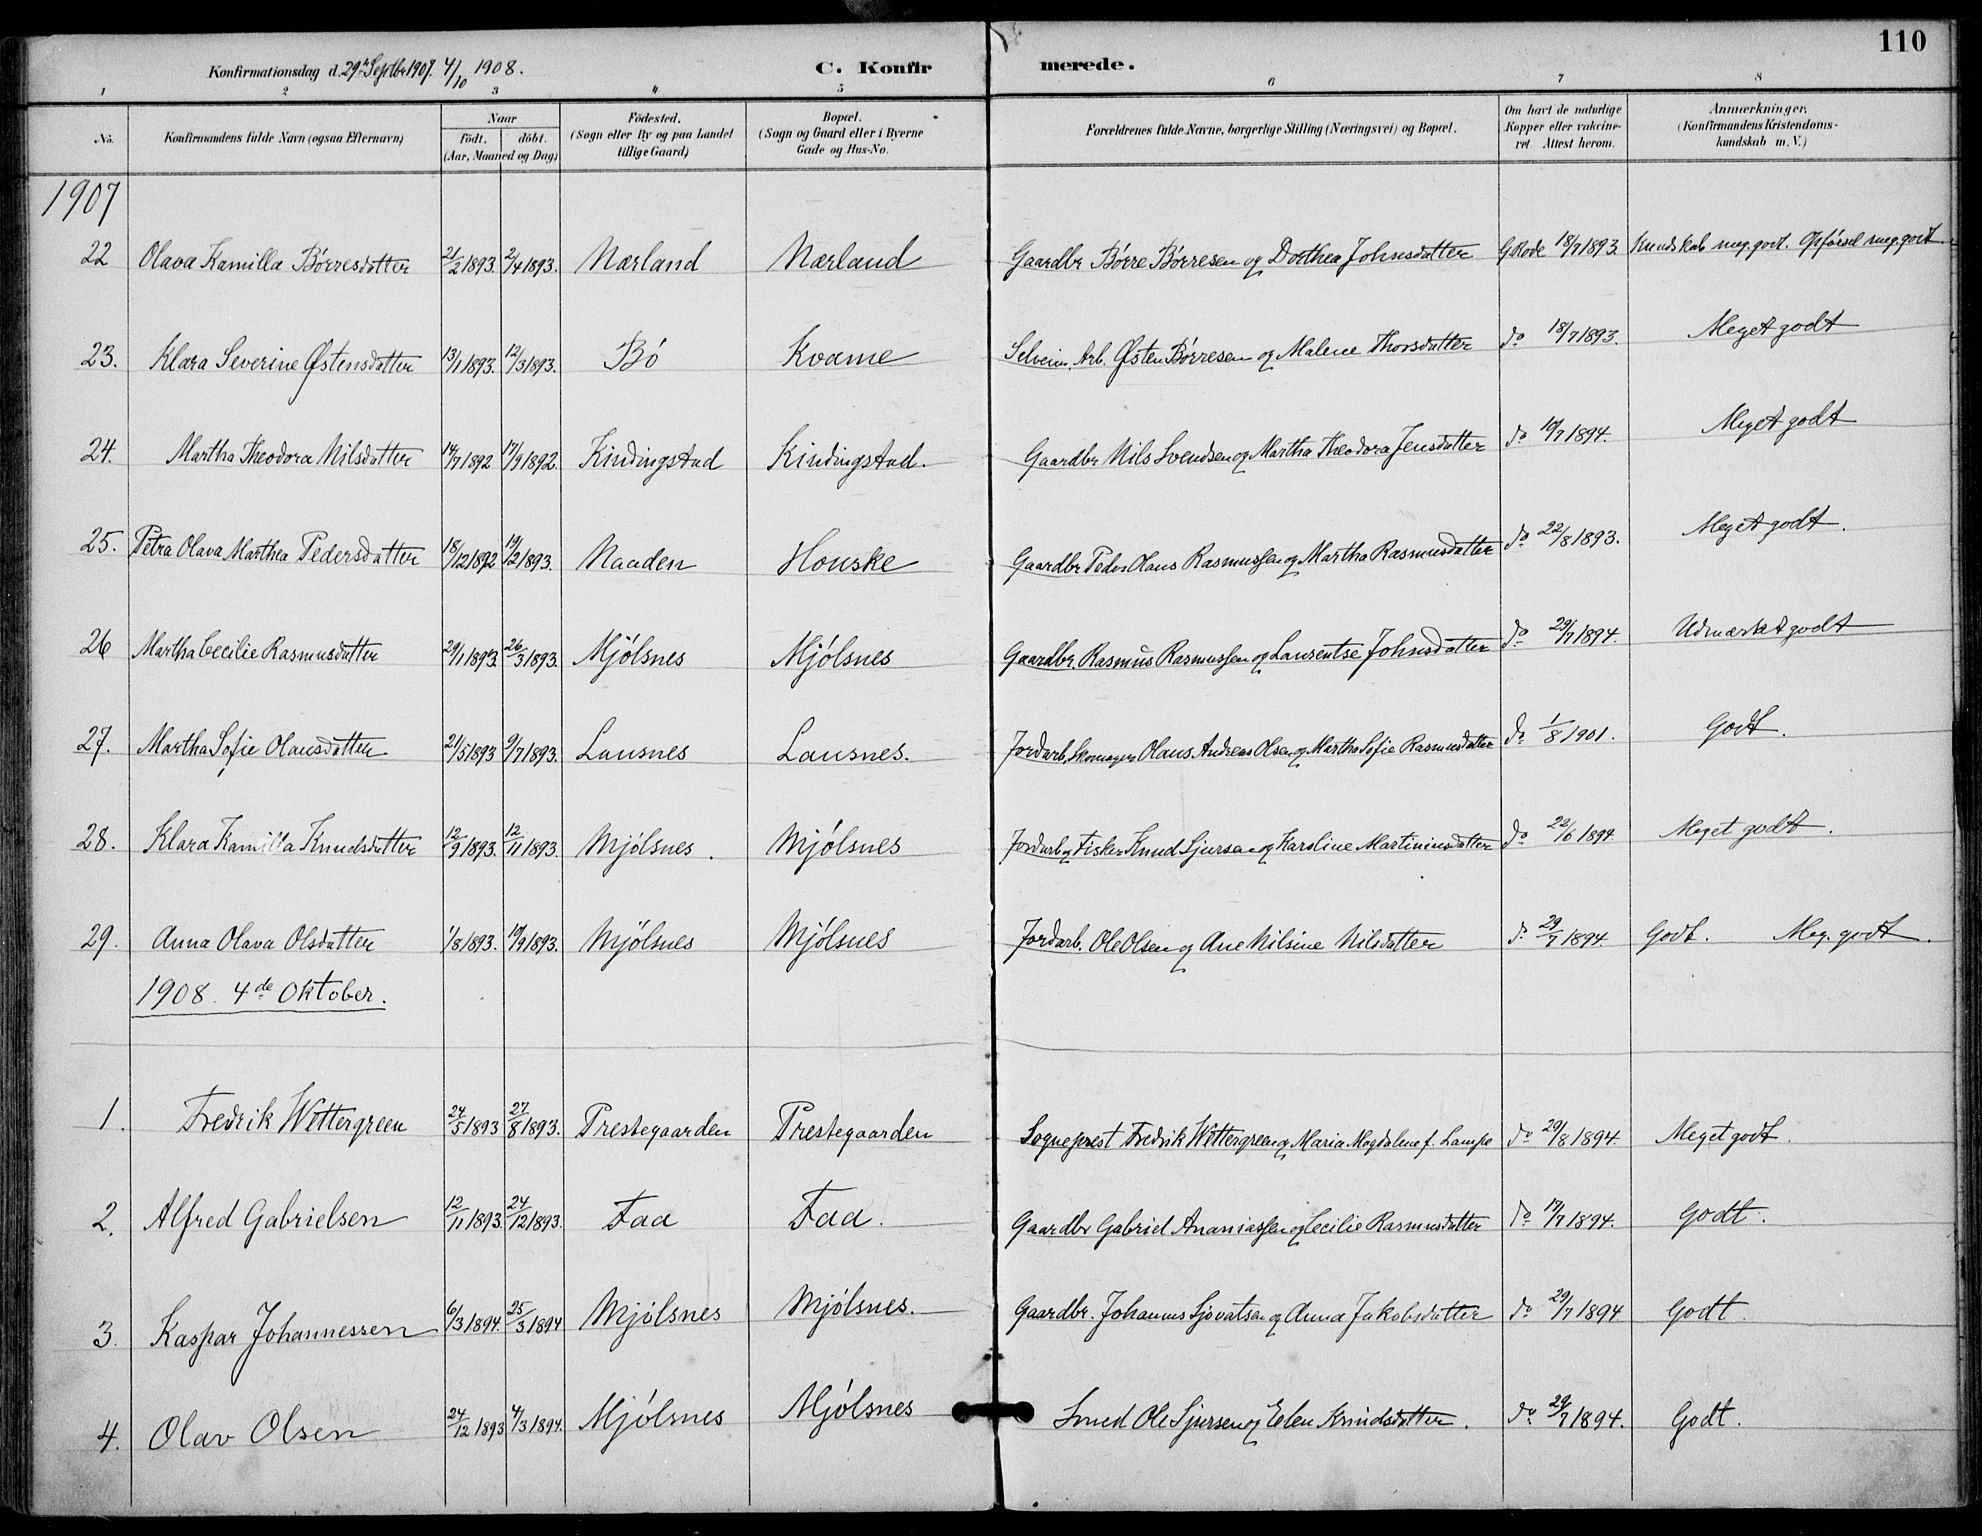 110
Konfirmationsdag d. 29de Septbr 1907. 4/10 1908. C. Konfir merede.
1 2 3 4 5 6 7 8
No. Konfirmandens fulde Navn (ogsaa Efternavn) Naar født. døbt. (Aar, Maaned og Dag) Fødested. (Sogn eller By og paa Landet tillige Gaard) Bopæl. (Sogn og Gaard eller i Byerne Gade og Hus-No. Forældrenes fulde Navne, borgerlige Stilling (Næringsvei) og Bopæl. Om havt de naturlige Kopper eller vakcineret Attest herom. Anmærkninger. (Konfirmandens Kristendomskundskab m. V.)
1907
22 Olava Kamilla Børresdatter 21/2 1893. 2/4 1893. Nærland Nærland Gaardbr Børre Børresen og Dorthea Johnsdatter G Rode 18/7 1893. Kundskab meg. godt. Opførsel meg. godt.
23. Klara Severine Østensdatter 13/1 1893. 12/3 1893. Bø Kvame Selveier, Arb. Østen Børresen og Malene Thorsdatter do 18/7 1893. Meget godt
24. Martha Theodora Nilsdatter 14/7 1892 17/9 1892. Kindingstad Kindingstad. Gaardbr Nils Svendsen og Martha Theodora Jensdatter do 19/7 1894. Meget godt
25. Petra Olava Marthea Pedersdatter 18/12 1892 19/2 1893. Naaden Houske Gaardbr Peder Olaus Rasmussen og Martha Rasmusdatter do 22/8 1893. Meget godt.
26 Martha Cecilie Rasmusdatter 29/1 1893. 26/3 1893. Mjølsnes Mjølsnes Gaardbr. Rasmus Rasmussen og Laurentse Johnsdatter do 23/7 1894. Udmærket godt
27. Martha Sofie Olausdatter 21/5 1893 9/7 1893. Lausnes Lausnes. Jordarb, Skomager Olaus Andreas Olsen og Martha Sofie Rasmusdatter do 1/8 1901. Godt.
28. Klara Kamilla Knudsdatter 12/9 1893. 12/11 1893. Mjølsnes. Mjølsnes Jordarb og Fisker Knud Sjursen og Karoline Martiniusdatter do 22/6 1894. Meget godt.
29. Anna Olava Olsdatter 1/8 1893. 10/9 1893. Mjølsnes Mjølsnes Jordarb. Ole Olsen og Ane Nilsine Nilsdatter do 29/7 1894. Godt. Meg. godt.
1908. 4de Oktober.
1. Fredrik Wettergreen 24/5 1893 27/8 1893. Prestegaarden Prestegaarden Sogneprest Fredrik Wettergreen og Maria Magdalene f. Lampe do 29/8 1894. Meget godt.
2. Alfred Gabrielsen 12/11 1893. 24/12 1893. Faa Faa. Gaardbr Gabriel Ananiassen og Cecilie Rasmusdatter do 19/7 1894. Godt.
3. Kaspar Johannessen 6/3 1894. 25/3 1894 Mjølsnes Mjølsnes. Gaardbr. Johannes Sjovatsen og Anna Jakobsdatter do 29/7 1894 Godt.
4. Olav Olsen 24/12 1893 4/3 1894. Mjølsnes Mjølsnes Smed Ole Sjursen og Elen Knudsdatter. do 29/7 1894. Godt.